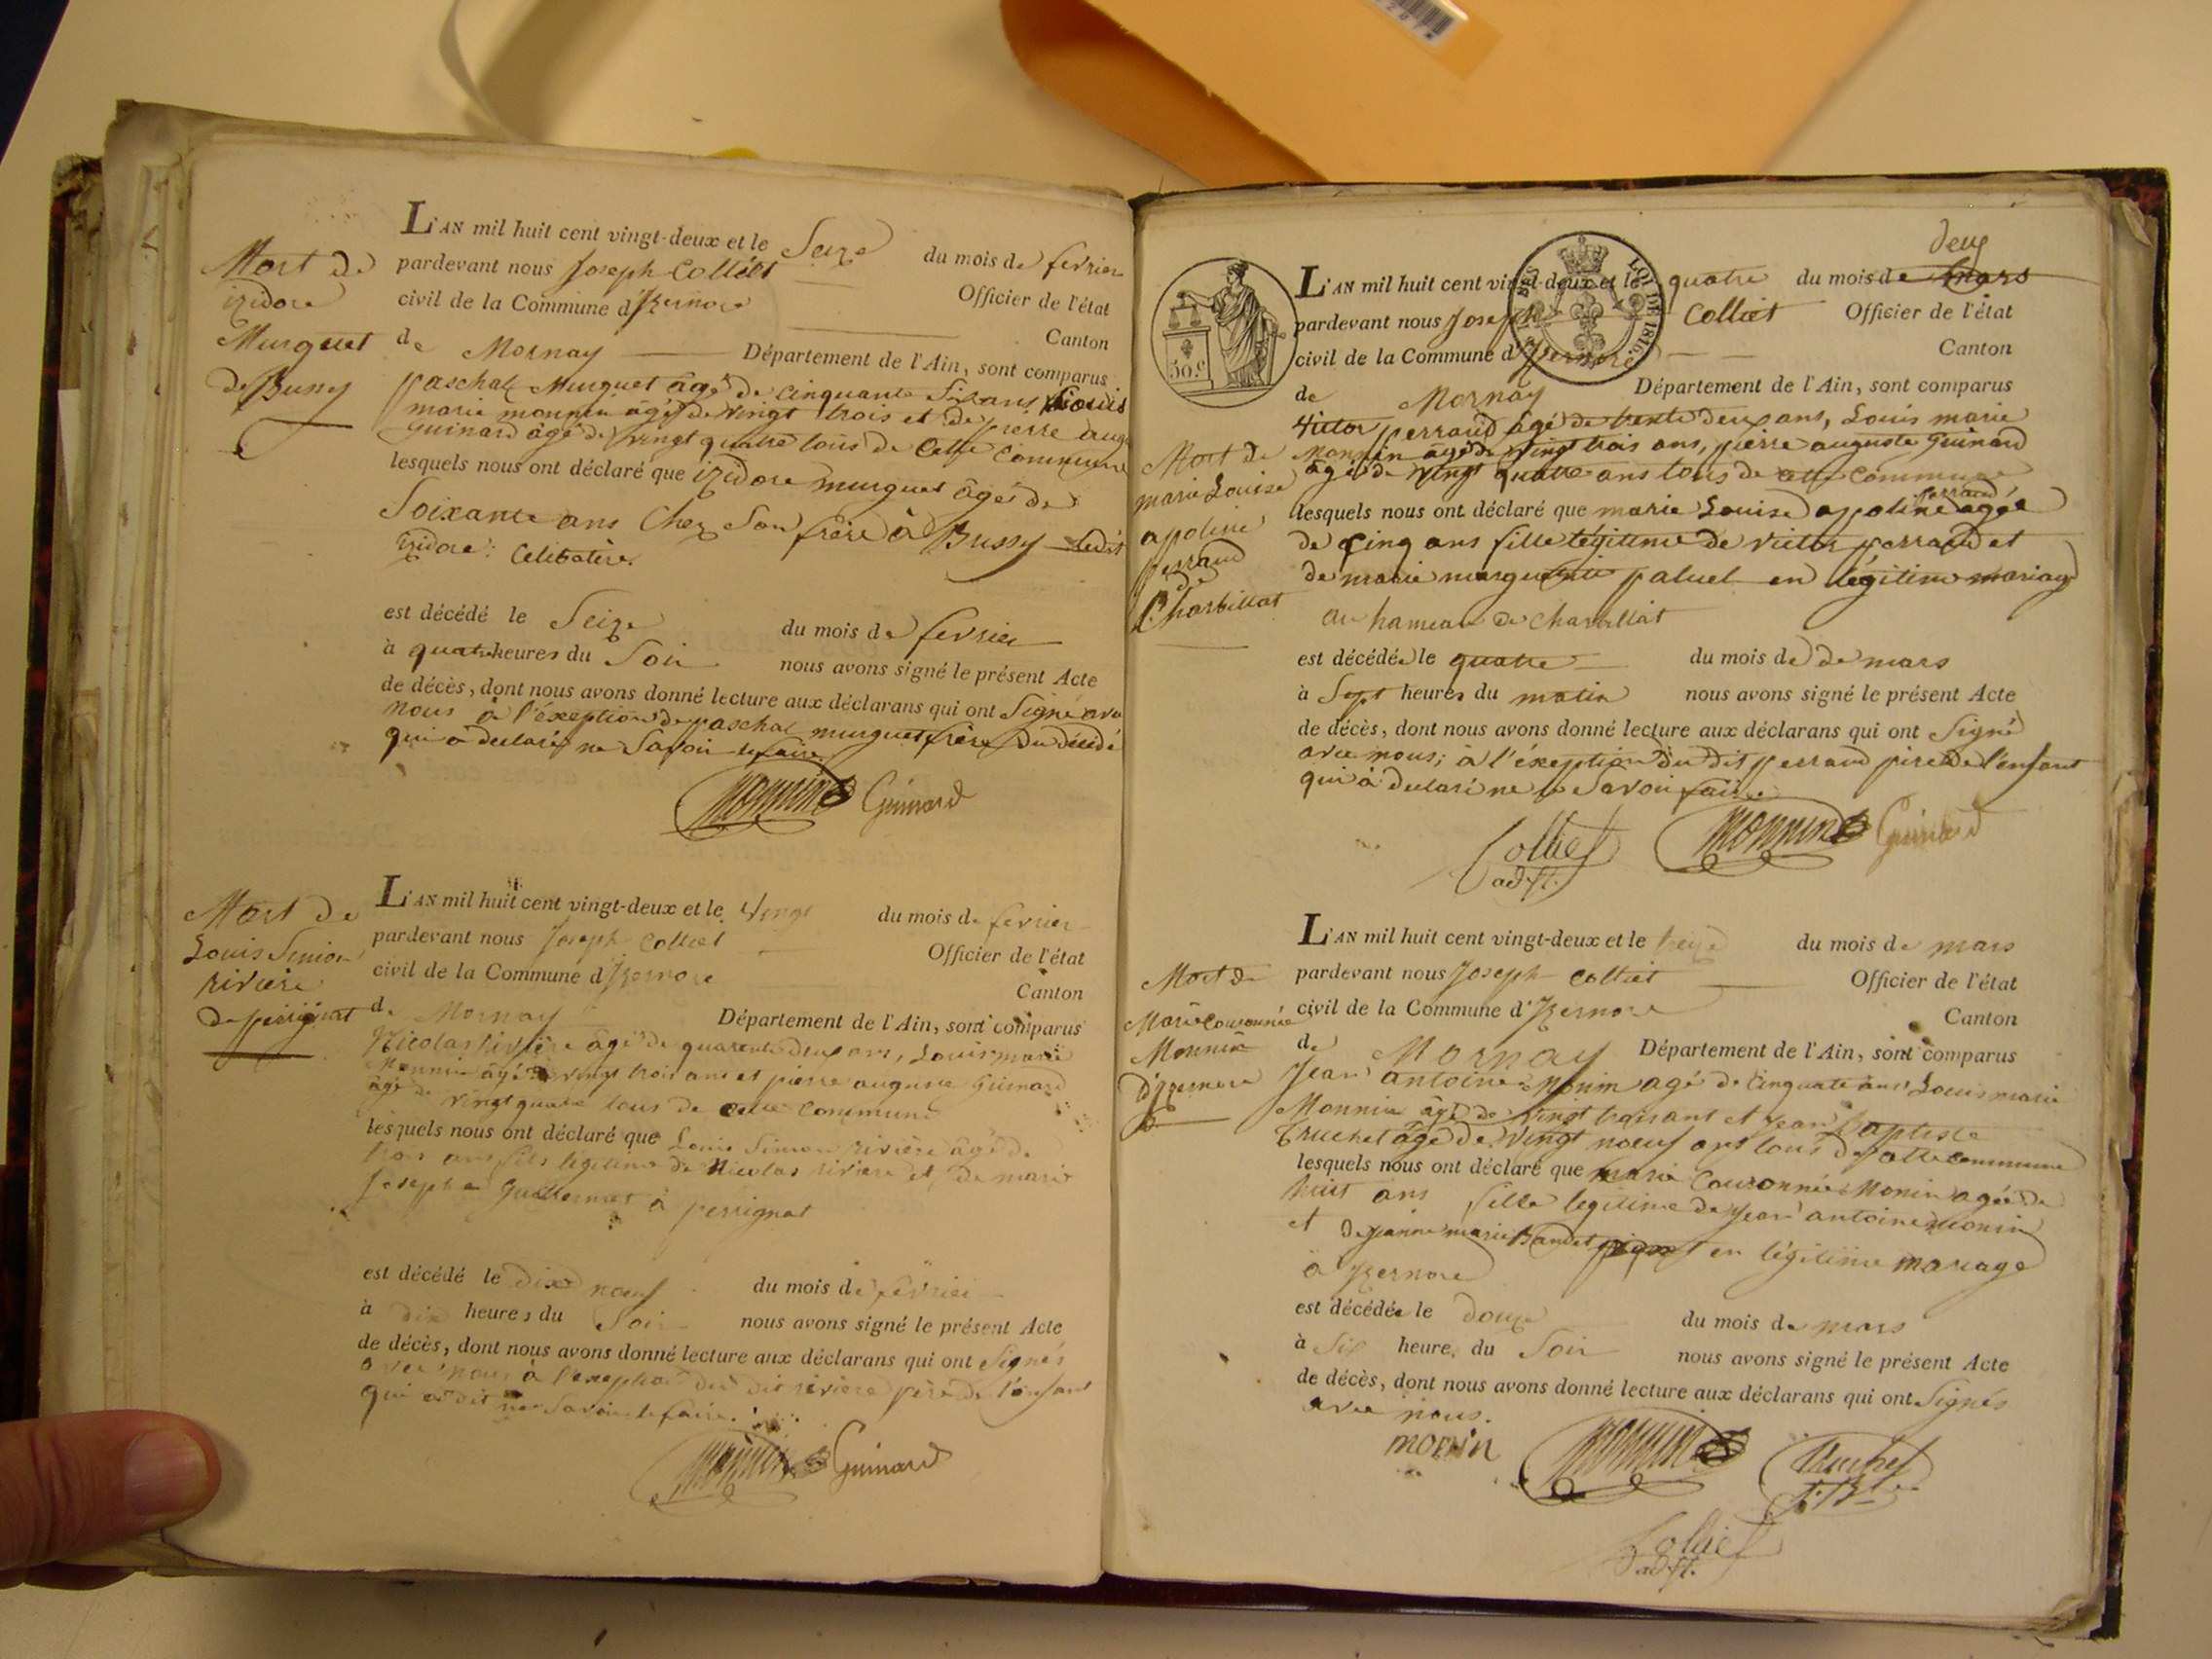 L'AN mil huit cent vingt-deux et le Seize du mois de fevrier
pardevant nous Joseph Colliet Officier de l'état
civil de la Commune d'Izernore Canton
de Mornay Département de l'Ain, sont comparus
paschal Murguet âgé de cinquante Six ans, Louis
marie monnin âgé de vingt trois et de pierre aug.
guinard âgé de vingt quatre tous de Cette Commune
lesquels nous ont déclaré que izidore murguet âgé de
Soixante ans Chez Son frère à Bussy ledit
izidore: Célibatère.
est décédé le Seize du mois de fevrier
à quatre heures du Soir nous avons signé le présent Acte
de décès, dont nous avons donné lecture aux déclarans qui ont Signé avec
nous à l'éxeption de paschal murguet frère du décédé
qui a déclaré ne Savoir le faire
Monnin Guinard
Mort de
izidore
Murguet
de Bussy
L'AN mil huit cent vingt-deux et le Vingt du mois de fevrier
pardevant nous Joseph Colliet Officier de l'état
civil de la Commune d'Izernore Canton
de Mornay Département de l'Ain, sont comparus
Nicolas rivière âgé de quarente deux ans, Louis marie
Monnin âgé de vingt trois ans et pierre auguste Guinard
âgé de vingt quatre tous de cette Commune
lesquels nous ont déclaré que Louis Simon rivière âgé de
trois ans fils légitime de Nicolas riviere et de marie
Josephe Guillermet à perrignat
est décédé le dix noeuf du mois de février
à dix heures du Soir nous avons signé le présent Acte
de décès, dont nous avons donné lecture aux déclarans qui ont Signés
avec nous à l'exeption du dit riviere père de l'enfant
qui a dit ne Savoir le faire.
Monnin Guinard
Mort de
Louis Simon
rivière
de perrignat
deux
L'AN mil huit cent vingt-deux et le quatre du mois de mars
pardevant nous Joseph Colliet Officier de l'état
civil de la Commune d'Izernore Canton
de Mornay Département de l'Ain, sont comparus
Victor perraud âgé de trente deux ans, Louis marie
Monnin âgé de vingt trois ans, pierre auguste Guinard
âgé de vingt quatre ans tous de cette Commune
perraud
lesquels nous ont déclaré que marie Louise apoline agée
de Cinq ans fille légitime de victor perraud et
de marie marguerite paluel en légitime mariage
au hameau de Charbillat
est décédée le quatre du mois de de mars
à Sept heures du matin nous avons signé le présent Acte
de décès, dont nous avons donné lecture aux déclarans qui ont Signé
avec nous; à l'éxeption du dit perraud père de l'enfant
qui à déclaré ne le Savoir faire.
Colliet adjt. Monnin Guinard
Mort de
marie Louise
apoline
perraud
de
Charbillat
LOI DE 1816.
50.c
L'AN mil huit cent vingt-deux et le treize du mois de mars
pardevant nous Joseph Colliet Officier de l'état
civil de la Commune d'Izernore Canton
de Mornay Département de l'Ain, sont comparus
Jean antoine Monin agé de Cinquate ans Louis marie
Monnin âgé de vingt trois ans et Jean Baptiste
Truchet âgé de vingt noeuf ans tous de cette Commune
lesquels nous ont déclaré que marie Couronnée Monin agée de
huit ans fille legitime de Jean antoine Monin
et de jeanne marie en légitime mariage
à Izernore
est décédée le douze du mois de mars
à Six heures du Soir nous avons signé le présent Acte
de décès, dont nous avons donné lecture aux déclarans qui ont Signés
avec nous.
monin Monnin Truchet J. B.
Colliet
adjt.
Mort de
Marie Couronnée
Monnin
d'Izernore